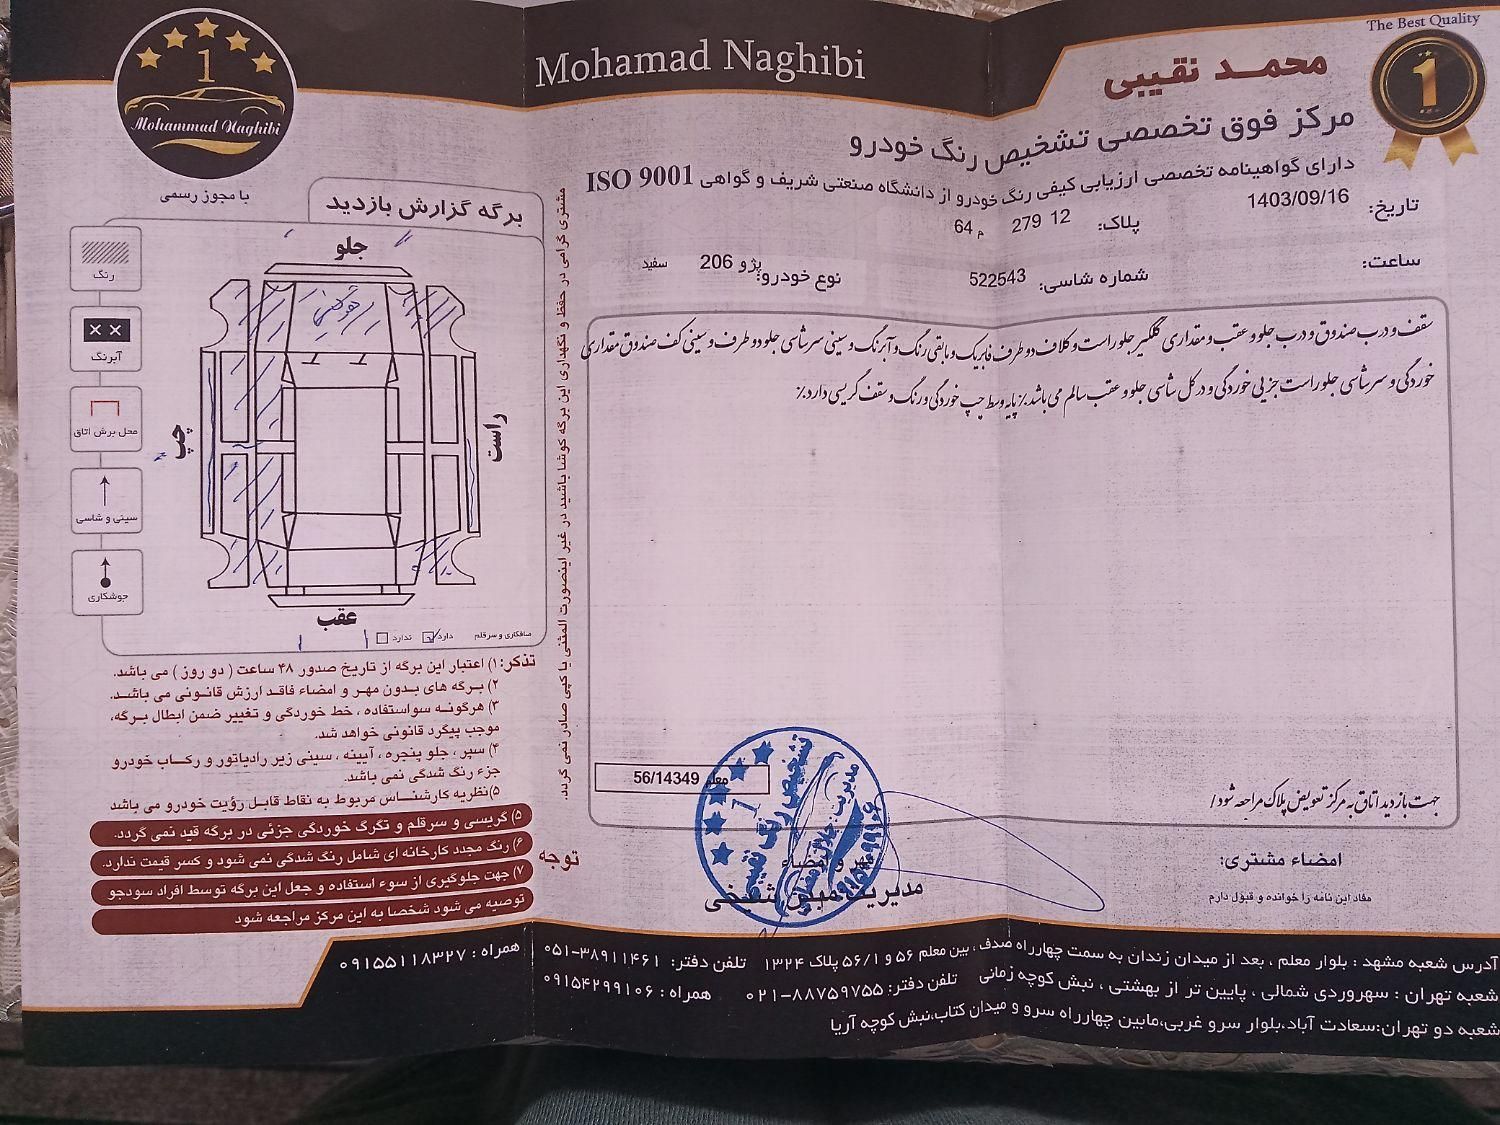 The Best Quality
1
Mohamad Naghibi
محمـد نقیبی
مرکز فوق تخصصی تشخیص رنگ خودرو
دارای گواهینامه تخصصی ارزیابی کیفی رنگ خودرو از دانشگاه صنعتی شریف و گواهی ISO 9001
تاریخ: 1403/09/16
پلاک: 12 279 م 64
ساعت:
شماره شاسی: 522543
نوع خودرو: پژو 206 سفید
سقف و درب صندوق و درب جلو و عقب و مقداری گلگیر جلو راست و کلاف دو طرف فابریک و مابقی رنگ و آبرنگ و سینی سرشاسی جلو دو طرف و سینی کف صندوق مقداری
خوردگی و سرشاسی جلو راست جزیی خوردگی و در کل شاسی جلو و عقب سالم می باشد./ پایه وسط چپ خوردگی و رنگ و سقف گریسی دارد./
جهت بازدید اتاق به مرکز تعویض پلاک مراجعه شود /
معلم 56/14349
تشخیص رنگ نقیبی
1
مهر و امضاء
مدیریت
امضاء مشتری:
مفاد این نامه را خوانده و قبول دارم
1
Mohammad Naghibi
با مجوز رسمی
برگه گزارش بازدید
رنگ
آبرنگ
محل برش اتاق
سینی و شاسی
جوشکاری
جلو
چپ
راست
عقب
صافکاری و سرقلم دارد ندارد
مشتری گرامی در حفظ و نگهداری این برگه کوشا باشید در غیر اینصورت المثنی یا کپی صادر نمی گردد.
تذکر: ۱) اعتبار این برگه از تاریخ صدور ۴۸ ساعت ( دو روز ) می باشد.
۲) برگه های بدون مهر و امضاء فاقد ارزش قانونی می باشد.
۳) هرگونه سواستفاده ، خط خوردگی و تغییر ضمن ابطال برگه،
موجب پیگرد قانونی خواهد شد.
۴) سپر ، جلو پنجره ، آیینه ، سینی زیر رادیاتور و رکاب خودرو
جزء رنگ شدگی نمی باشد.
۵) نظریه کارشناس مربوط به نقاط قابل رؤیت خودرو می باشد
توجه
۵) گریسی و سرقلم و تگرگ خوردگی جزئی در برگه قید نمی گردد.
۶) رنگ مجدد کارخانه ای شامل رنگ شدگی نمی شود و کسر قیمت ندارد.
۷) جهت جلوگیری از سوء استفاده و جعل این برگه توسط افراد سودجو
توصیه می شود شخصا به این مرکز مراجعه شود
آدرس شعبه مشهد : بلوار معلم ، بعد از میدان زندان به سمت چهارراه صدف ، بین معلم ۵۶ و ۵۶/۱ پلاک ۱۳۲۴ تلفن دفتر: ۳۸۹۱۱۴۶۱-۰۵۱ همراه : ۰۹۱۵۵۱۱۸۳۲۷
شعبه تهران : سهروردی شمالی ، پایین تر از بهشتی ، نبش کوچه زمانی تلفن دفتر: ۸۸۷۵۹۷۵۵-۰۲۱ همراه : ۰۹۱۵۴۲۹۹۱۰۶
شعبه دو تهران:سعادت آباد،بلوار سرو غربی،مابین چهارراه سرو و میدان کتاب،نبش کوچه آریا